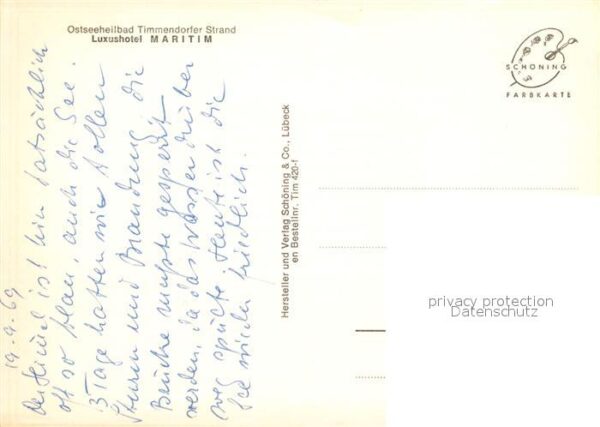 Ostseeheilbad Timmendorfer Strand
Luxushotel MARITIM
SCHÖNING
FARBKARTE
Hersteller und Verlag Schöning & Co., Lübeck
en Bestellnr. Tim 420-f
19.9.69
Der Himmel ist hier tatsächlich
oft so blau, auch die See.
3 Tage hatten wir tollen
Sturm und Brandung, die
Brücke mußte gesperrt
werden, da das Wasser drüber
weg spülte. Heute ist die
See wieder friedlich.
privacy protection
Datenschutz